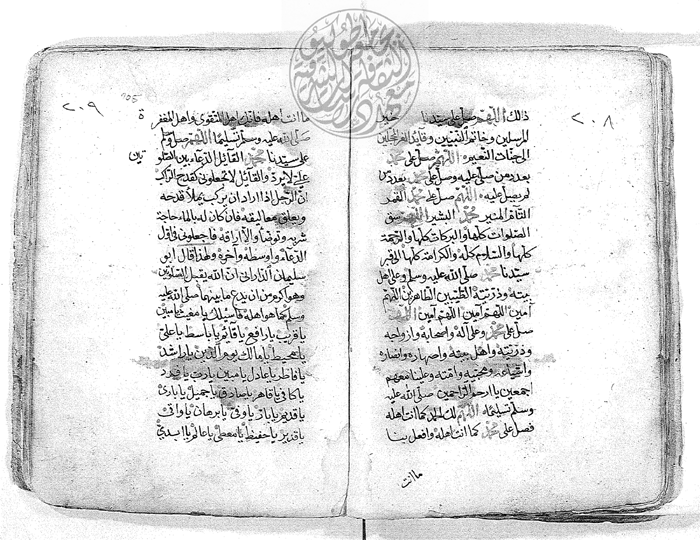 ٢٠٨
ذالك اللهم صل على سيدنا خير
المرسلين وخاتم النبيين وقايد الغر المحجلين
الى جنات النعيم اللهم صل على محمد
بعدد من صلى عليه وصل على محمد بعدد من
لم يصل عليه اللهم صل على محمد القمر
التام المنير محمد البشير اللهم سق
الصلوات كلها والبركات كلها والرحمة
كلها والسلام كله والكرامة كلها الى قبر
سيدنا محمد صلى الله عليه وسلم وعلى اهل
بيته وذريته الطيبين الطاهرين اللهم
آمين اللهم آمين اللهم آمين اللهم
صل على محمد وعلى آله واصحابه وازواجه
وذريته واهل بيته واصهاره وانصاره
واشياعه ومحبيه وامته وعلينا معهم
اجمعين يا ارحم الراحمين صلى الله عليه
وسلم تسليما اللهم لك الحمد كما انت اهله
فصل على محمد كما انت اهله وافعل بنا
ما انت
٢٠٩
ما انت اهله فانك اهل التقوى واهل المغفر
ة
صلى الله عليه وسلم تسليما اللهم صل وسلم
على سيدنا محمد القائل الدعاء بين الصلو
تين
علي لا يرد والقائل لا تجعلوني كقدح الراكب
ان الرجل اذا اراد ان يركب يملأ قدحه
ويعلق معاليقه فان كان له بالماء حاجة
شربه وتوضأ والا اراقه فاجعلوني في اول
الدعاء واوسطه وآخره ولهذا قال ابو
سليمان الداراني ان الله يقبل الصلوتين
وهو اكرم من ان يدع ما بينهما صلى الله عليه
وسلم كما هو اهله فاسئلك يا مغيث يا مبين
يا قريب يا رافع يا قائم يا باسط يا علي
يا محيط يا مالك يوم الدين يا راشد
يا فاطر يا عادل يا مبين يا رب يا فرد
يا كافي يا قاهر يا صادق يا جميل يا بادئ
يا قديم يا بار يا وفي يا برهان يا واقي
يا قدير يا حفيظ يا معطي يا عالم يا ابدي